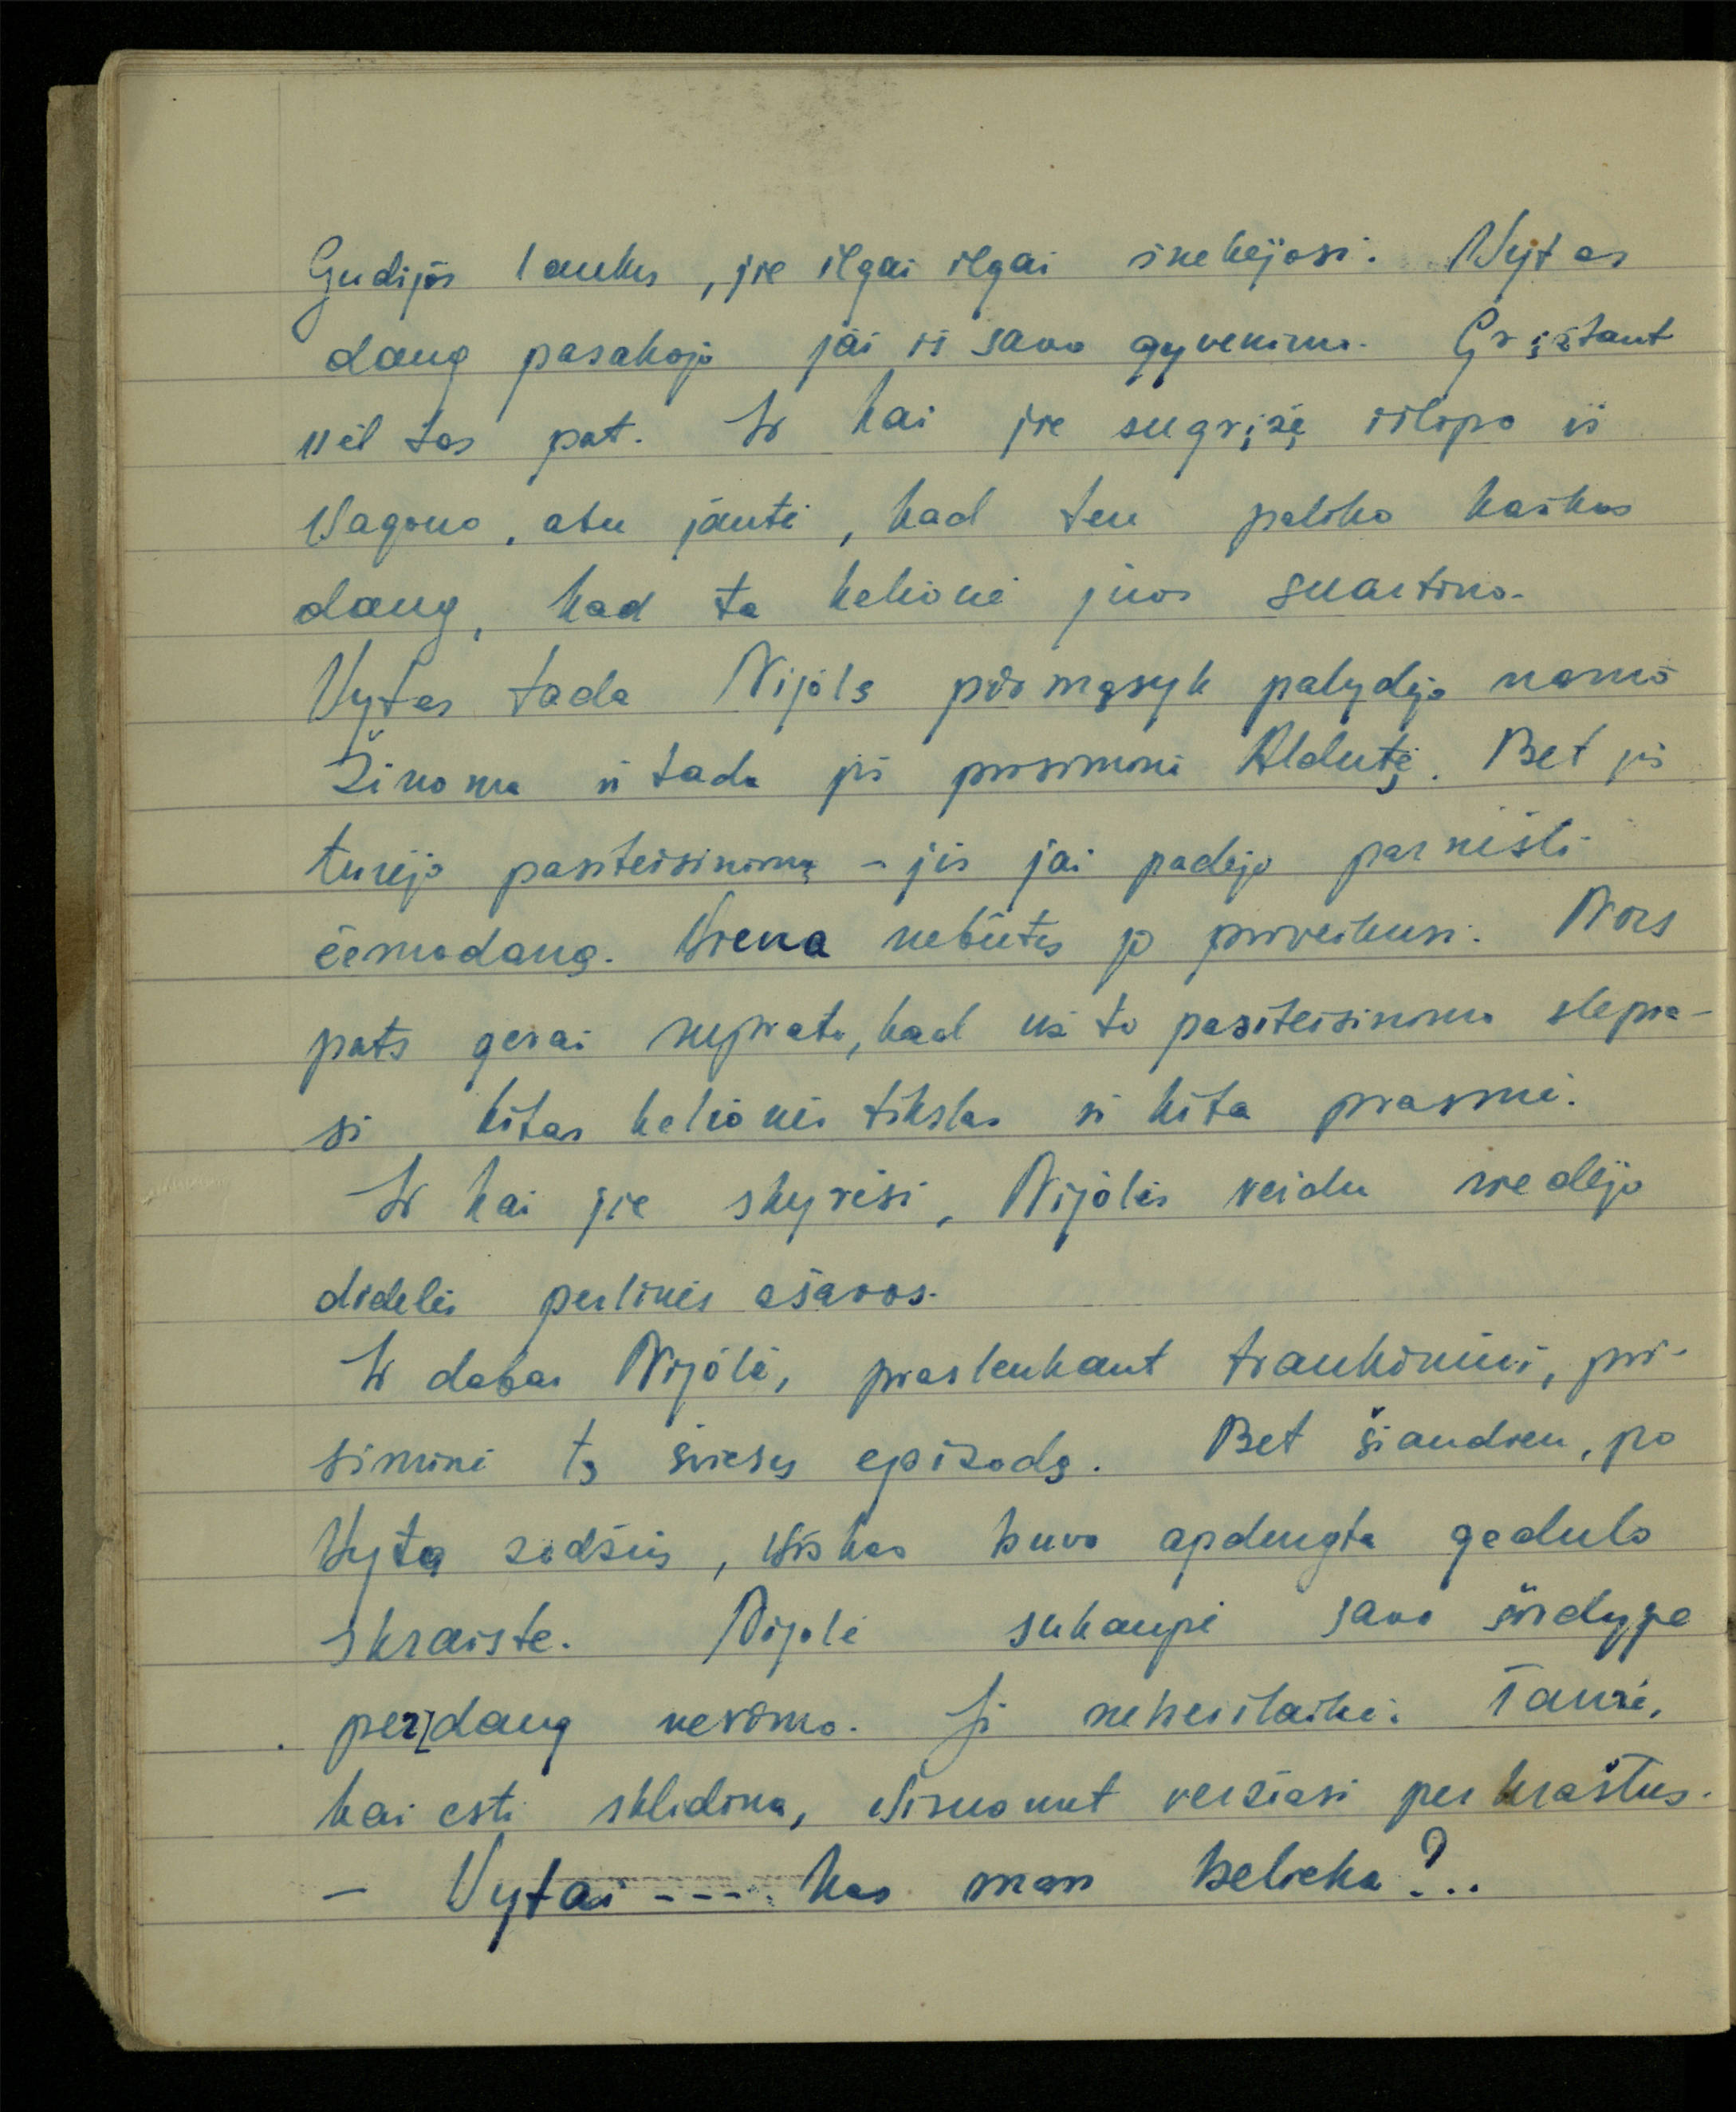 Gudijos laukus, jie ilgai ilgai šnekėjosi. Vytas
daug pasakojo jai iš savo gyvenimo. Grįžtant
vėl tas pat. Ir kai jie sugrįžę išlipo iš
Vagono, abu jautė, kad ten paliko kažkas
daug, kad ta kelionė juos suartino.
Vytas tada Nijolę pirmąsyk palydėjo namo
Žinoma ir tada jis prisiminė Aldutę. Bet jis
turėjo pasiteisinimą - jis jai padėjo parnešti
čemodaną. Viena nebūtų jo parveikusi. Nors
pats gerai suprato, kad už to pasiteisinimo slepia-
si kitas kelionės tikslas ir kita prasmė.
Ir kai jie skyrėsi, Nijolės veidu riedėjo
didelės perlinės ašaros.
Ir dabar Nijolė, praslenkant traukiniui, pri-
siminė tą šviesų epizodą. Bet šiandien, po
Vyto žodžių, viskas buvo apdengta gedulo
skraiste. Nijolė sukaupė savo širdyje
perdaug nerimo. Ji nebeišlaikė. Taurė,
kai esti sklidina, visuomet veržiasi per kraštus.
- Vytai ---- kas man belieka?..